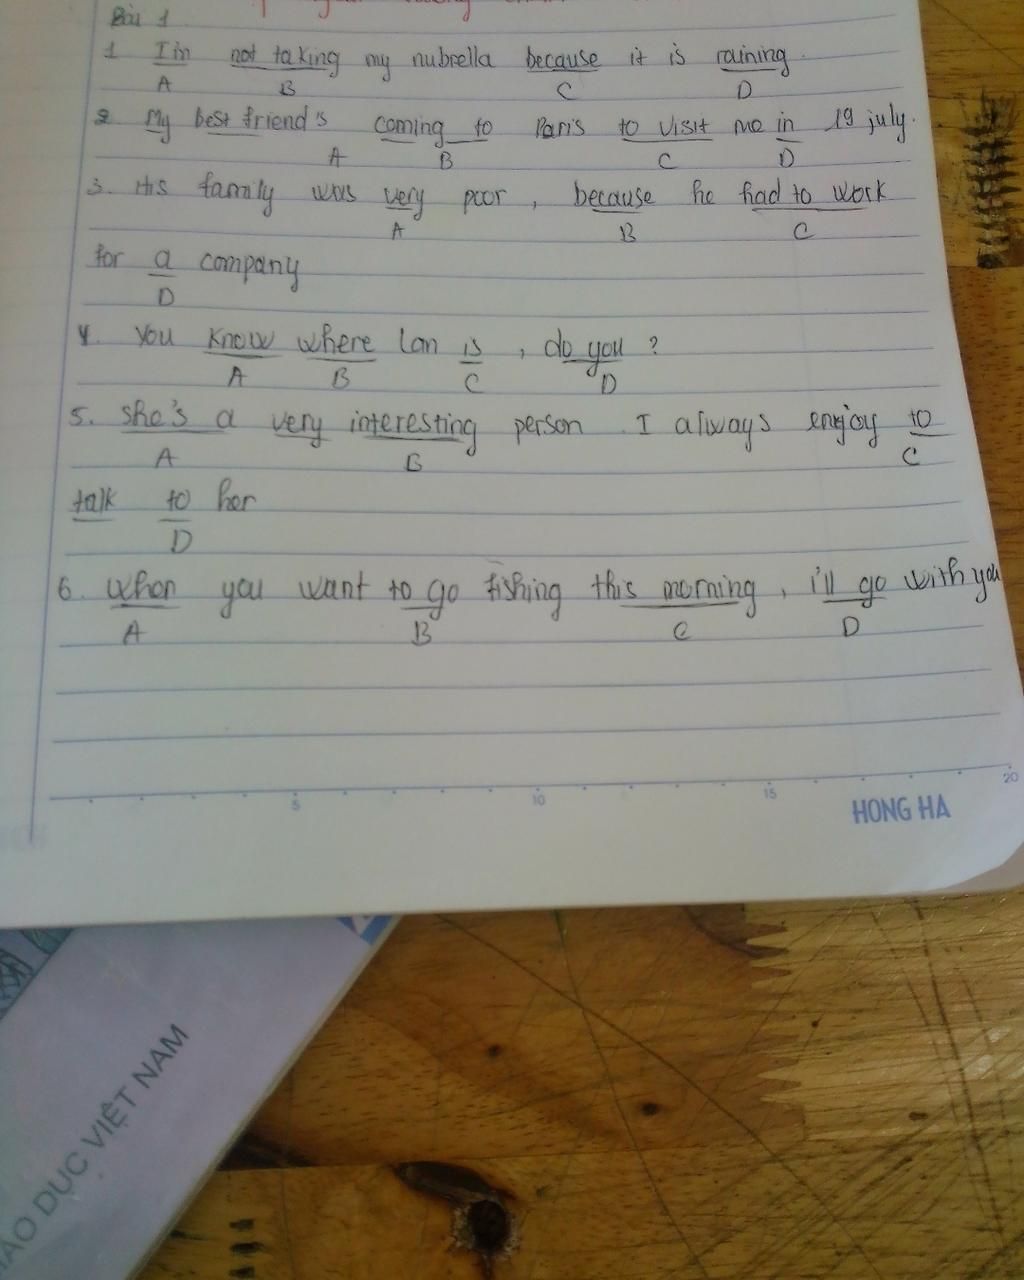 Bài 1
1 I'm not taking my nubrella because it is raining.
A B C D
2. My best friend's coming to Paris to visit me in 19 july.
A B C D
3. His family was very poor, because he had to work
A B C
for a company
D
4. You know where Lan is, do you?
A B C D
5. she's a very interesting person. I always enjoy to
A B C
talk to her
D
6. when you want to go fishing this morning, i'll go with you
A B C D
5 10 15 20
HONG HA
DỤC VIỆT NAM